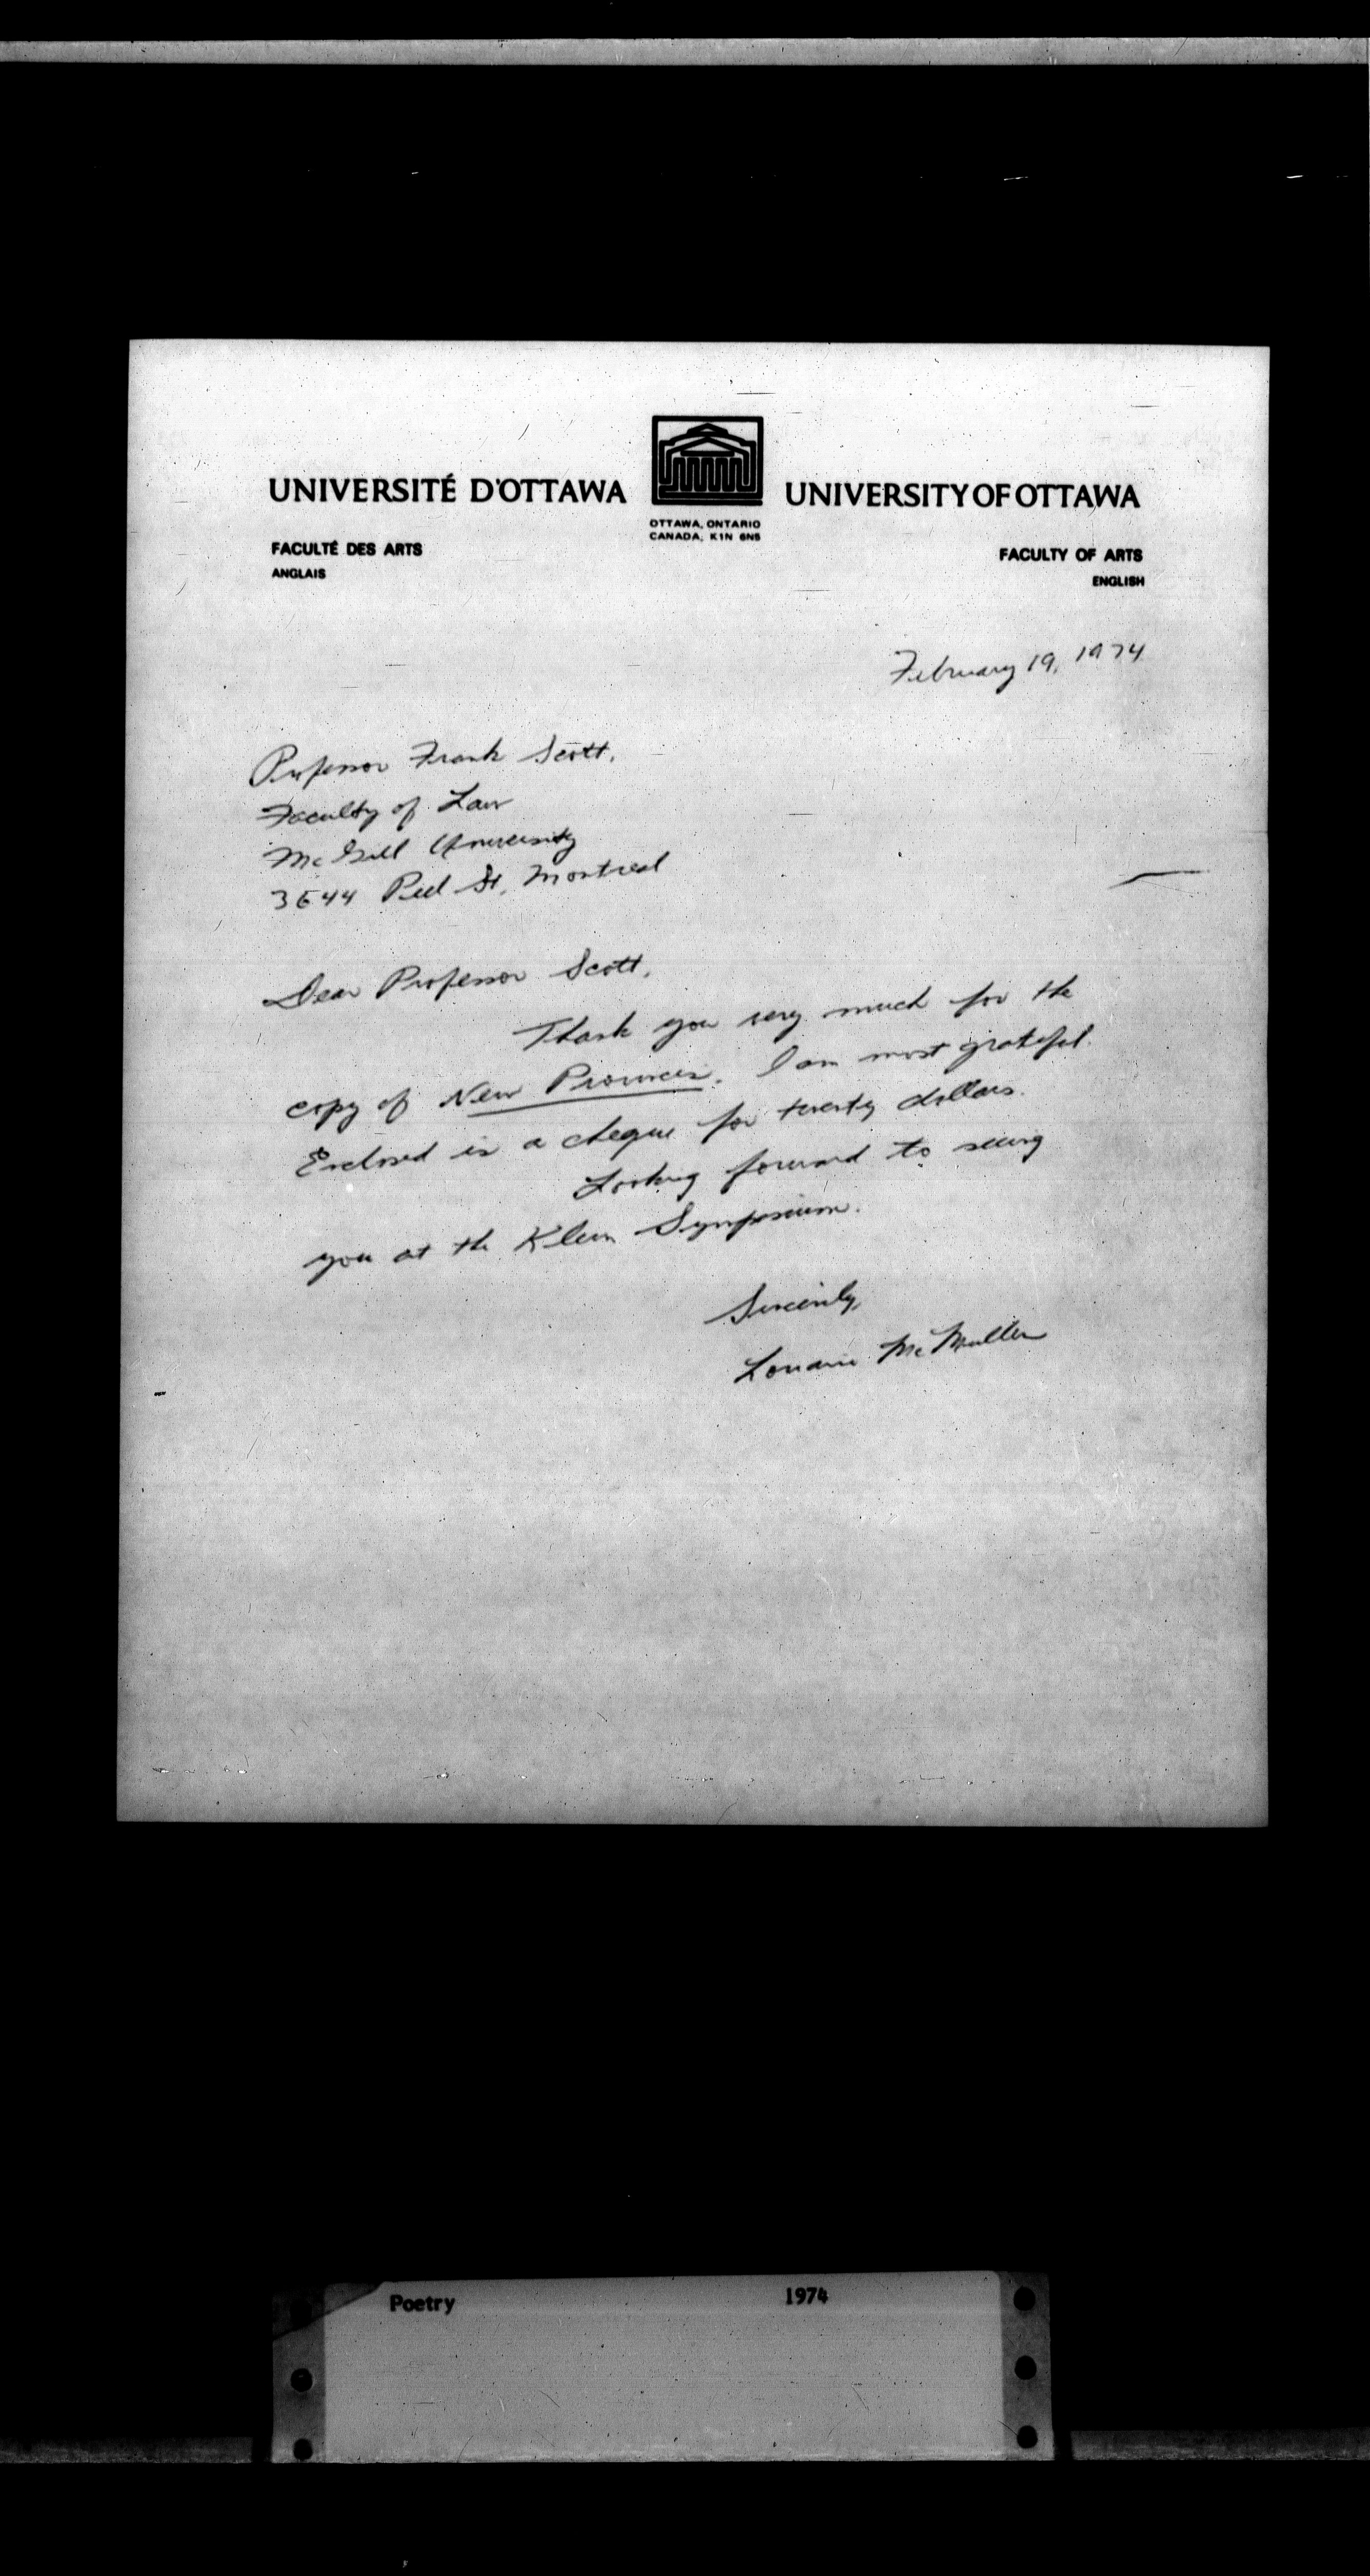 UNIVERSITÉ D'OTTAWA
UNIVERSITY OF OTTAWA
OTTAWA, ONTARIO
CANADA, K1N 6N5
FACULTÉ DES ARTS
ANGLAIS
FACULTY OF ARTS
ENGLISH
February 19, 1974
Professor Frank Scott,
Faculty of Law
McGill University
3644 Peel St, Montreal
Dear Professor Scott,
Thank you very much for the
copy of New Provinces. I am most grateful.
Enclosed is a cheque for twenty dollars.
Looking forward to seeing
you at the Klein Symposium.
Sincerely,
Lorraine McMullen
Poetry 1974